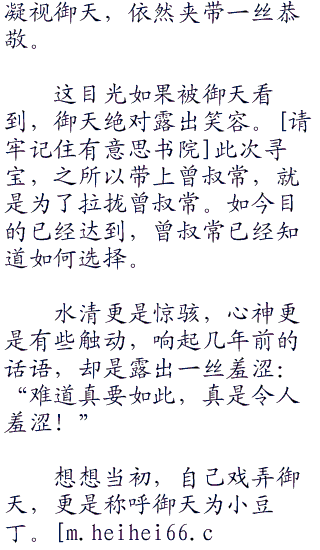 凝视御天，依然夹带一丝恭
敬。
这目光如果被御天看
到，御天绝对露出笑容。[请
牢记住有意思书院]此次寻
宝，之所以带上曾叔常，就
是为了拉拢曾叔常。如今目
的已经达到，曾叔常已经知
道如何选择。
水清更是惊骇，心神更
是有些触动，响起几年前的
话语，却是露出一丝羞涩：
“难道真要如此，真是令人
羞涩！”
想想当初，自己戏弄御
天，更是称呼御天为小豆
丁。[m.heihei66.c